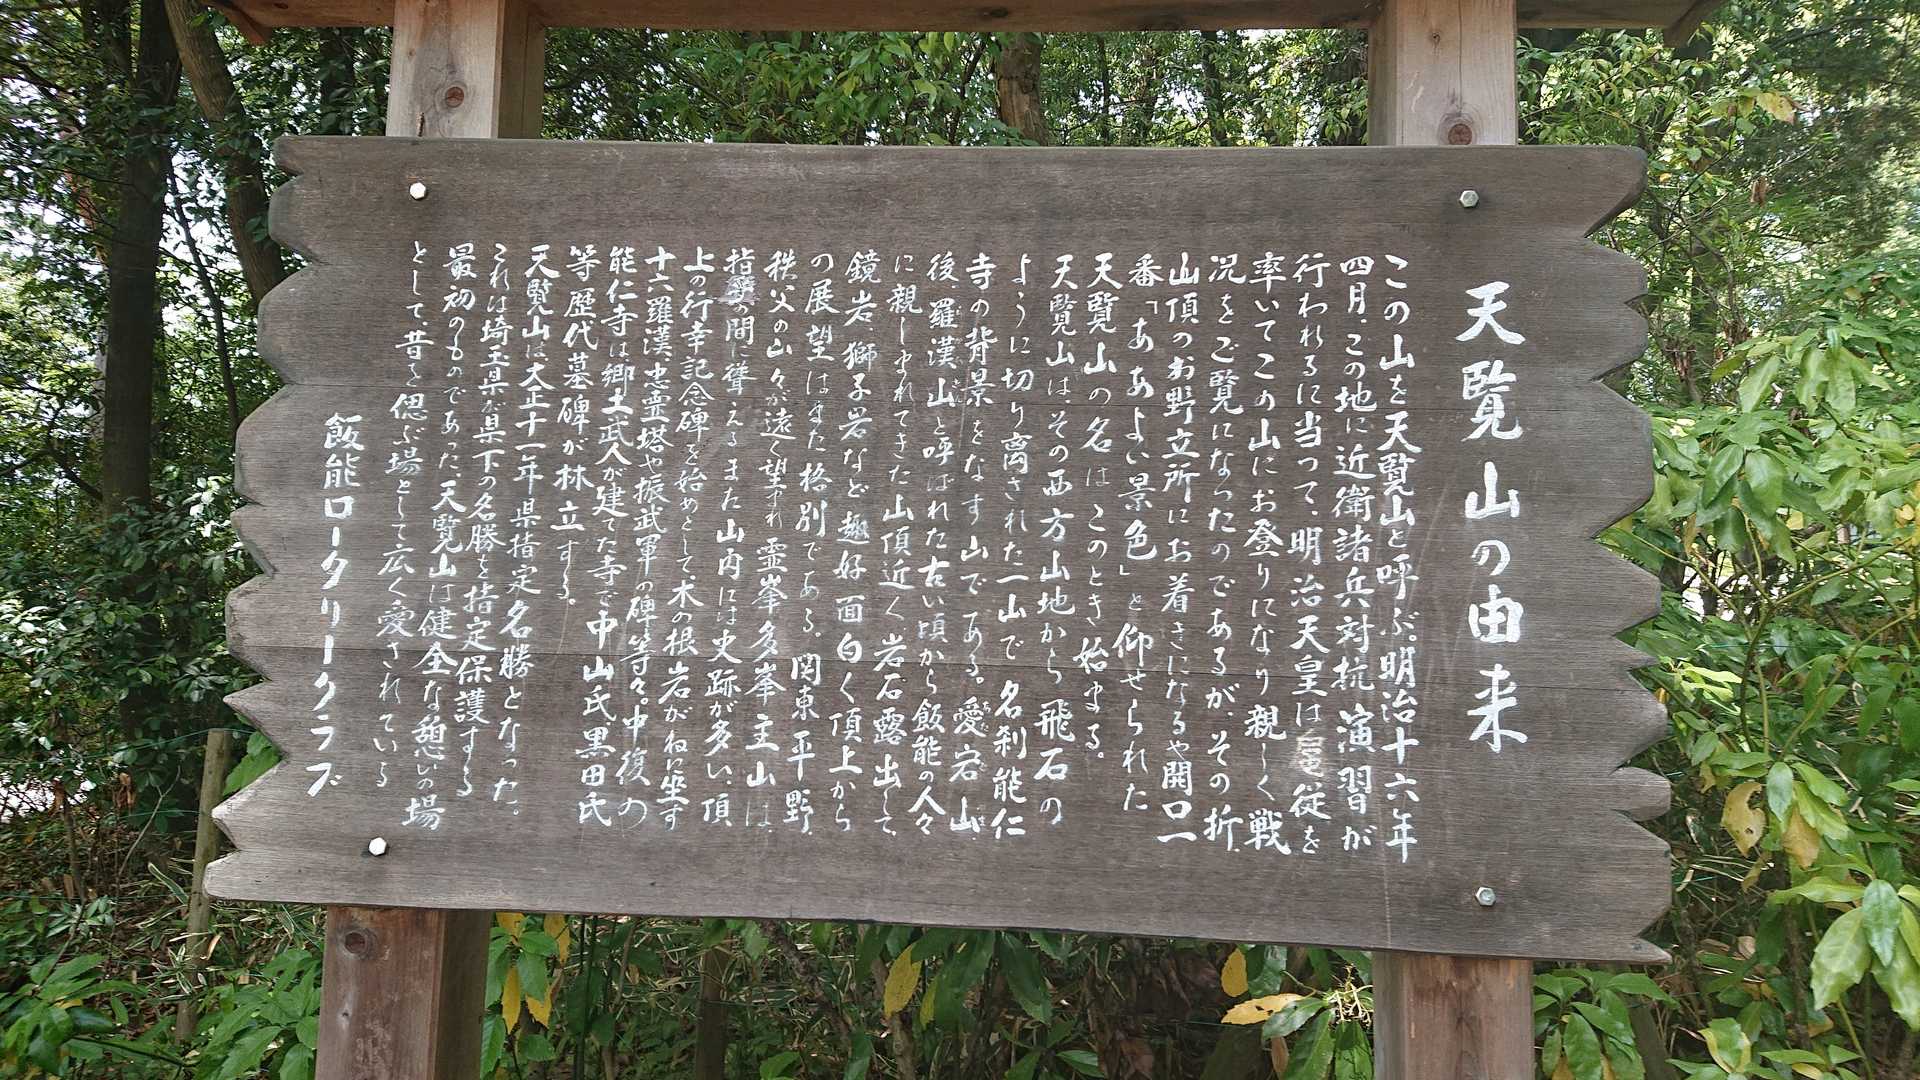 天覧山の由来
この山を天覧山と呼ぶ。明治十六年
四月、この地に近衛諸兵対抗演習が
行われるに当って、明治天皇は扈従を
率いてこの山にお登りになり親しく戦
況をご覧になったのであるが、その折、
山頂のお野立所にお着きになるや開口一
番「ああよい景色」と仰せられた
天覧山の名はこのとき始まる。
天覧山は、その西方山地から飛石の
ように切り離された一山で名刹能仁
寺の背景をなす山である。愛宕山、
後、羅漢山と呼ばれた古い頃から飯能の人々
に親しまれてきた山頂近く岩石露出して、
鏡岩、獅子岩など趣好面白く頂上から
の展望はまた格別である。関東平野、
秩父の山々が遠く望まれ霊峯多峯主山は、
指呼の間に聳えるまた山内には史跡が多い、頂
上の行幸記念碑を始めとして、木の根岩がねに坐す
十六羅漢、忠霊塔や振武軍の碑等々。中復の
能仁寺は郷土武人が建てた寺で中山氏黒田氏
等歴代墓碑が林立する。
天覧山は、大正十一年県指定名勝となった。
これは埼玉県が県下の名勝を指定保護する
最初のものであった、天覧山は健全な憩いの場
として、昔を偲ぶ場として広く愛されている
飯能ロータリークラブ